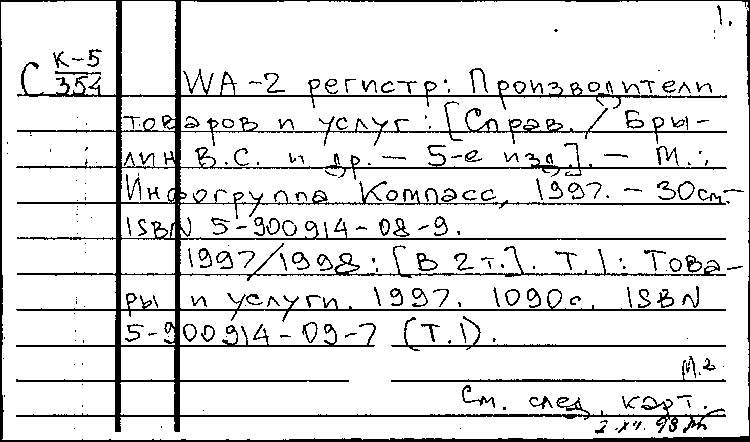 1.
С К-5
354
WA-2 регистр: Производители
товаров и услуг: [Справ. / Бры-
лин В.С. и др. — 5-е изд.]. — М.:
Инфогруппа Компасс, 1997. — 30см.—
ISBN 5-900914-08-9.
1997/1998: [В 2т.]. Т.1: Това-
ры и услуги. 1997. 1090с. ISBN
5-900914-09-7 (Т.1).
См. след. карт.